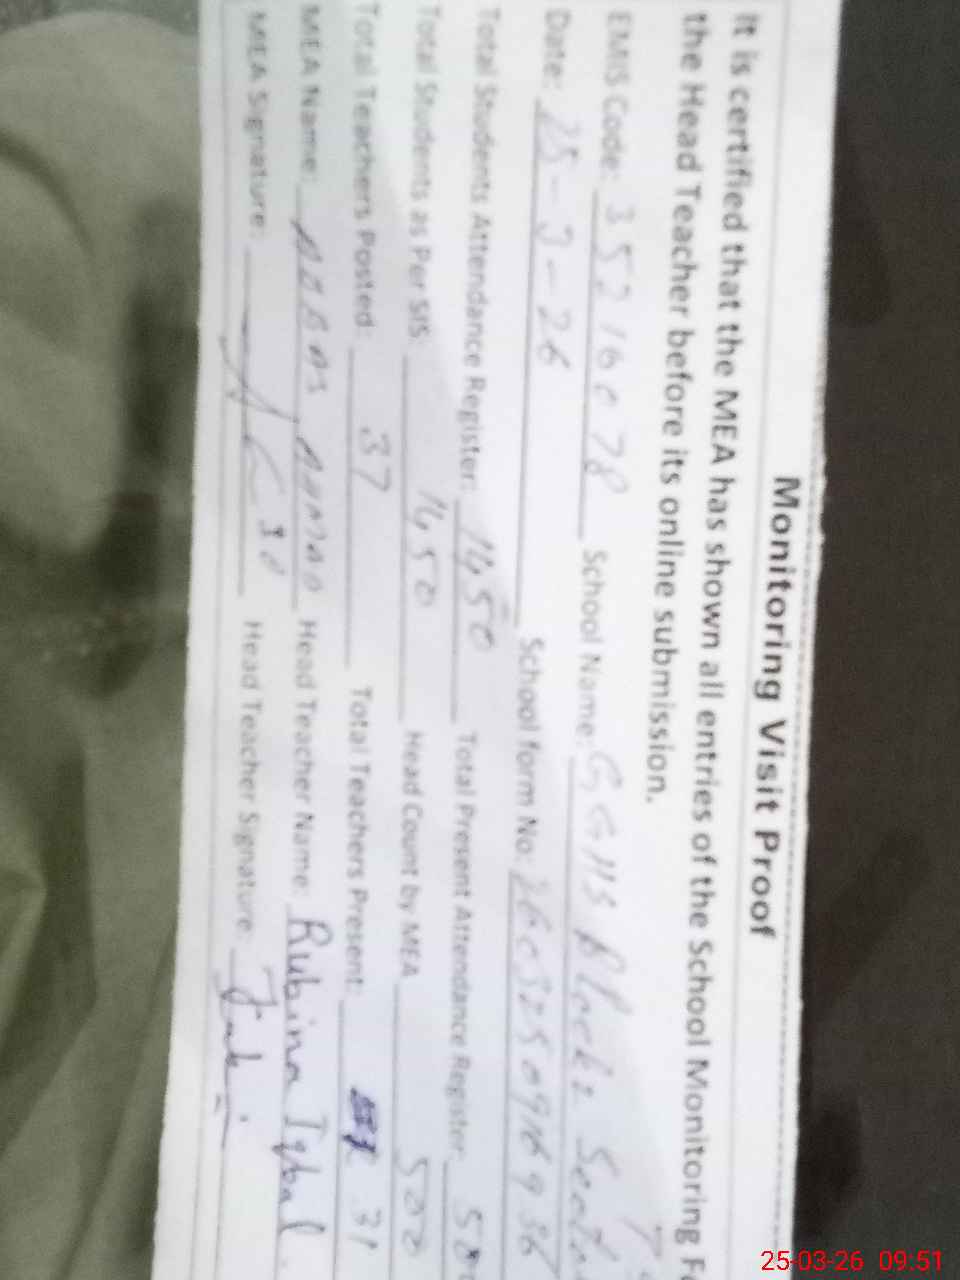 Monitoring Visit Proof
It is certified that the MEA has shown all entries of the School Monitoring
the Head Teacher before its online submission.
EMIS Code: 35216078 School Name: GGHS Block 2
Date: 25-3-26 School form No:
Total Students Attendance Register: 1450 Total Present Attendance Register
Total Students as Per SIS: 1450 Head Count by MEA 500
Total Teachers Posted: 37 Total Teachers Present: 31
MEA Name: ABBAS Head Teacher Name: Rubina Iqbal.
MEA Signature: Head Teacher Signature:
25-03-26 09:51